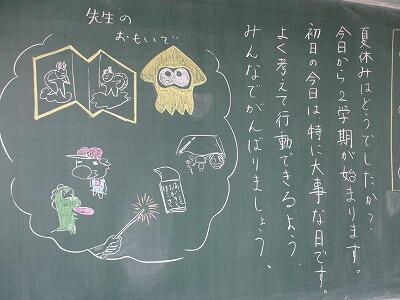 先生の
おもいで
夏休みはどうでしたか？
今日から２学期が始まります。
初日の今日は特に大事な日です。
よく考えて行動できるよう、
みんなでがんばりましょう。